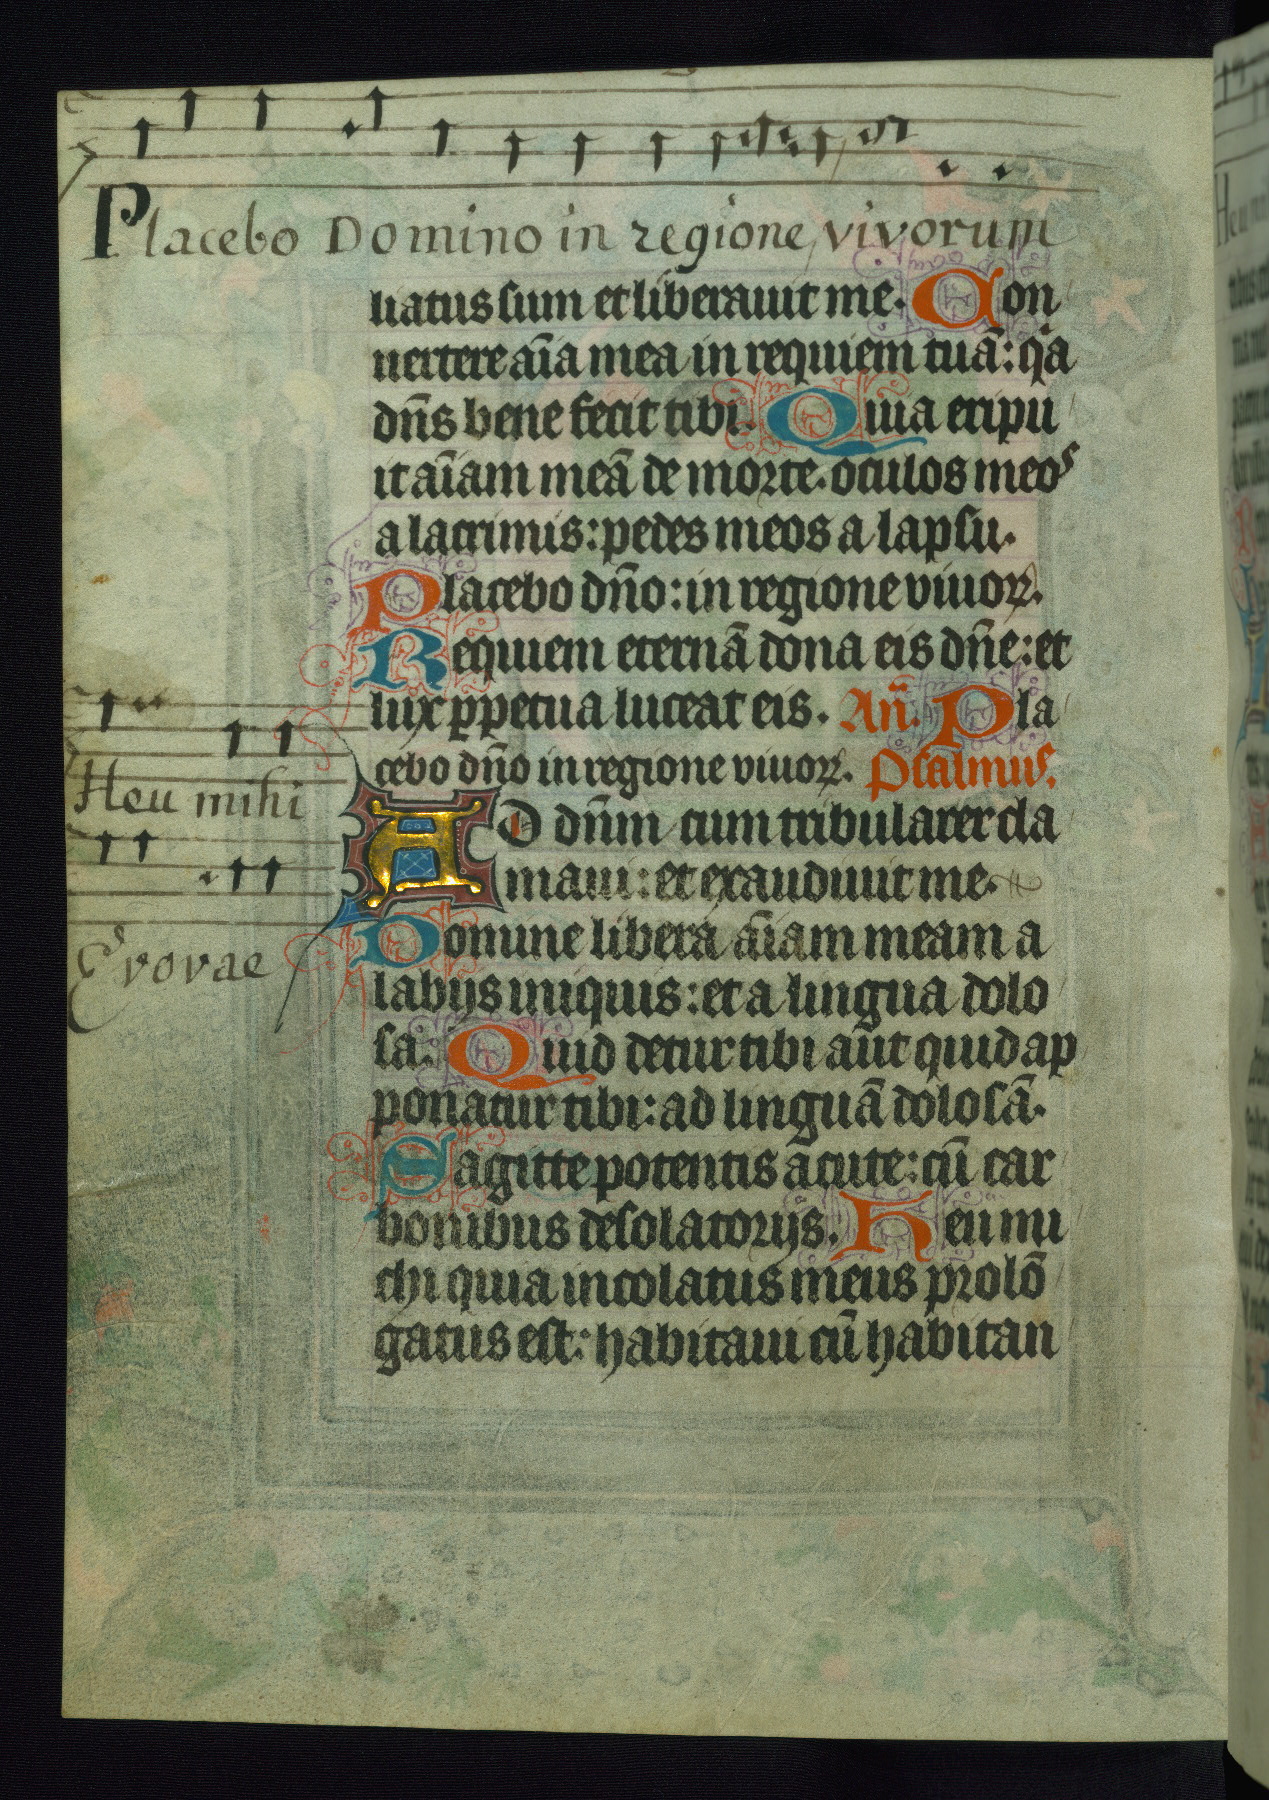 Placebo Domino in regione vivorum
liatus sum et liberauit me. Con
uertere aīa mea in requiem tuā: qa
dn̄s bene fecit tibi. Quia eripu
it aīam meā de morte. oculos meos
a lacrimis: pedes meos a lapsu.
Placebo dn̄o: in regione viuoꝝ.
Requiem eternā dona eis dn̄e: et
lux ꝑpetua luceat eis. An̄. Pla
cebo dn̄o in regione viuoꝝ. Psalmus.
Heu mihi
AD dn̄m cum tribularer cla
maui: et exaudiuit me.
Evovae
Domine libera aīam meam a
labijs iniquis: et a lingua dolo
sa. Quid detur tibi aut quid ap
ponatur tibi: ad linguā dolosā.
Sagitte potentis acute: cū car
bonibus desolatorijs. Heu mi
chi quia incolatus meus prolō
gatus est: habitaui cū habitan